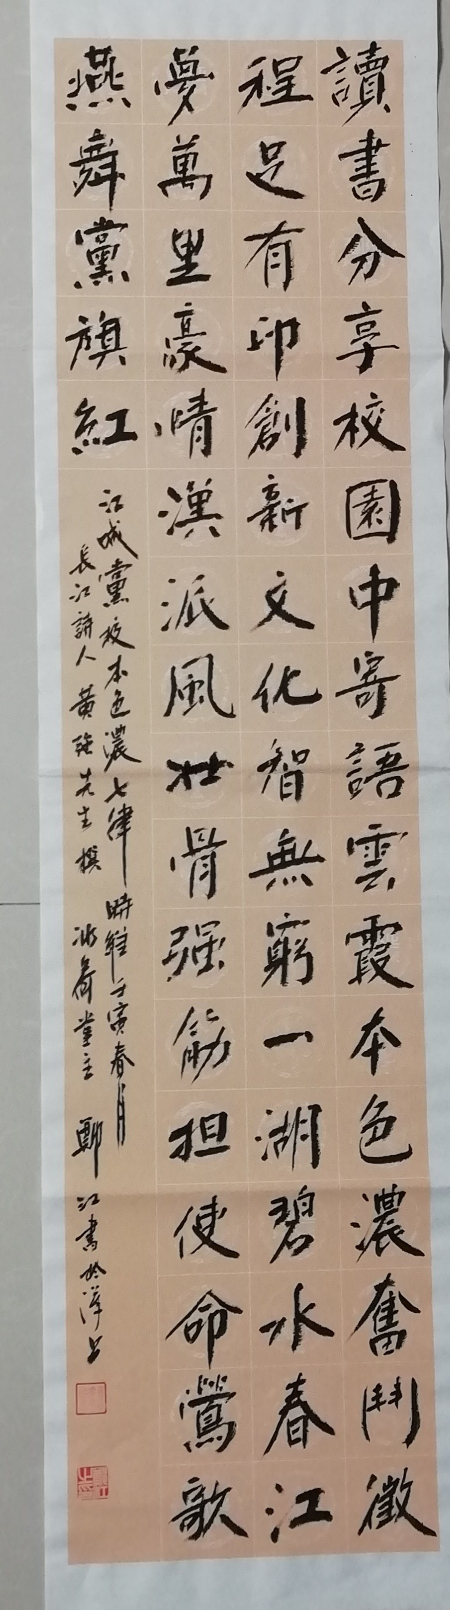 讀書分享校園中寄語雲霞本色濃奮鬥徵
程足有印創新文化智無窮一湖碧水春江
夢萬里豪情漢派風壯骨强筋担使命鶯歌
燕舞黨旗紅
江城黨校本色濃七律 時維壬寅春月
長江詩人黄強先生撰 冰荷堂主 鄭江書於漢上